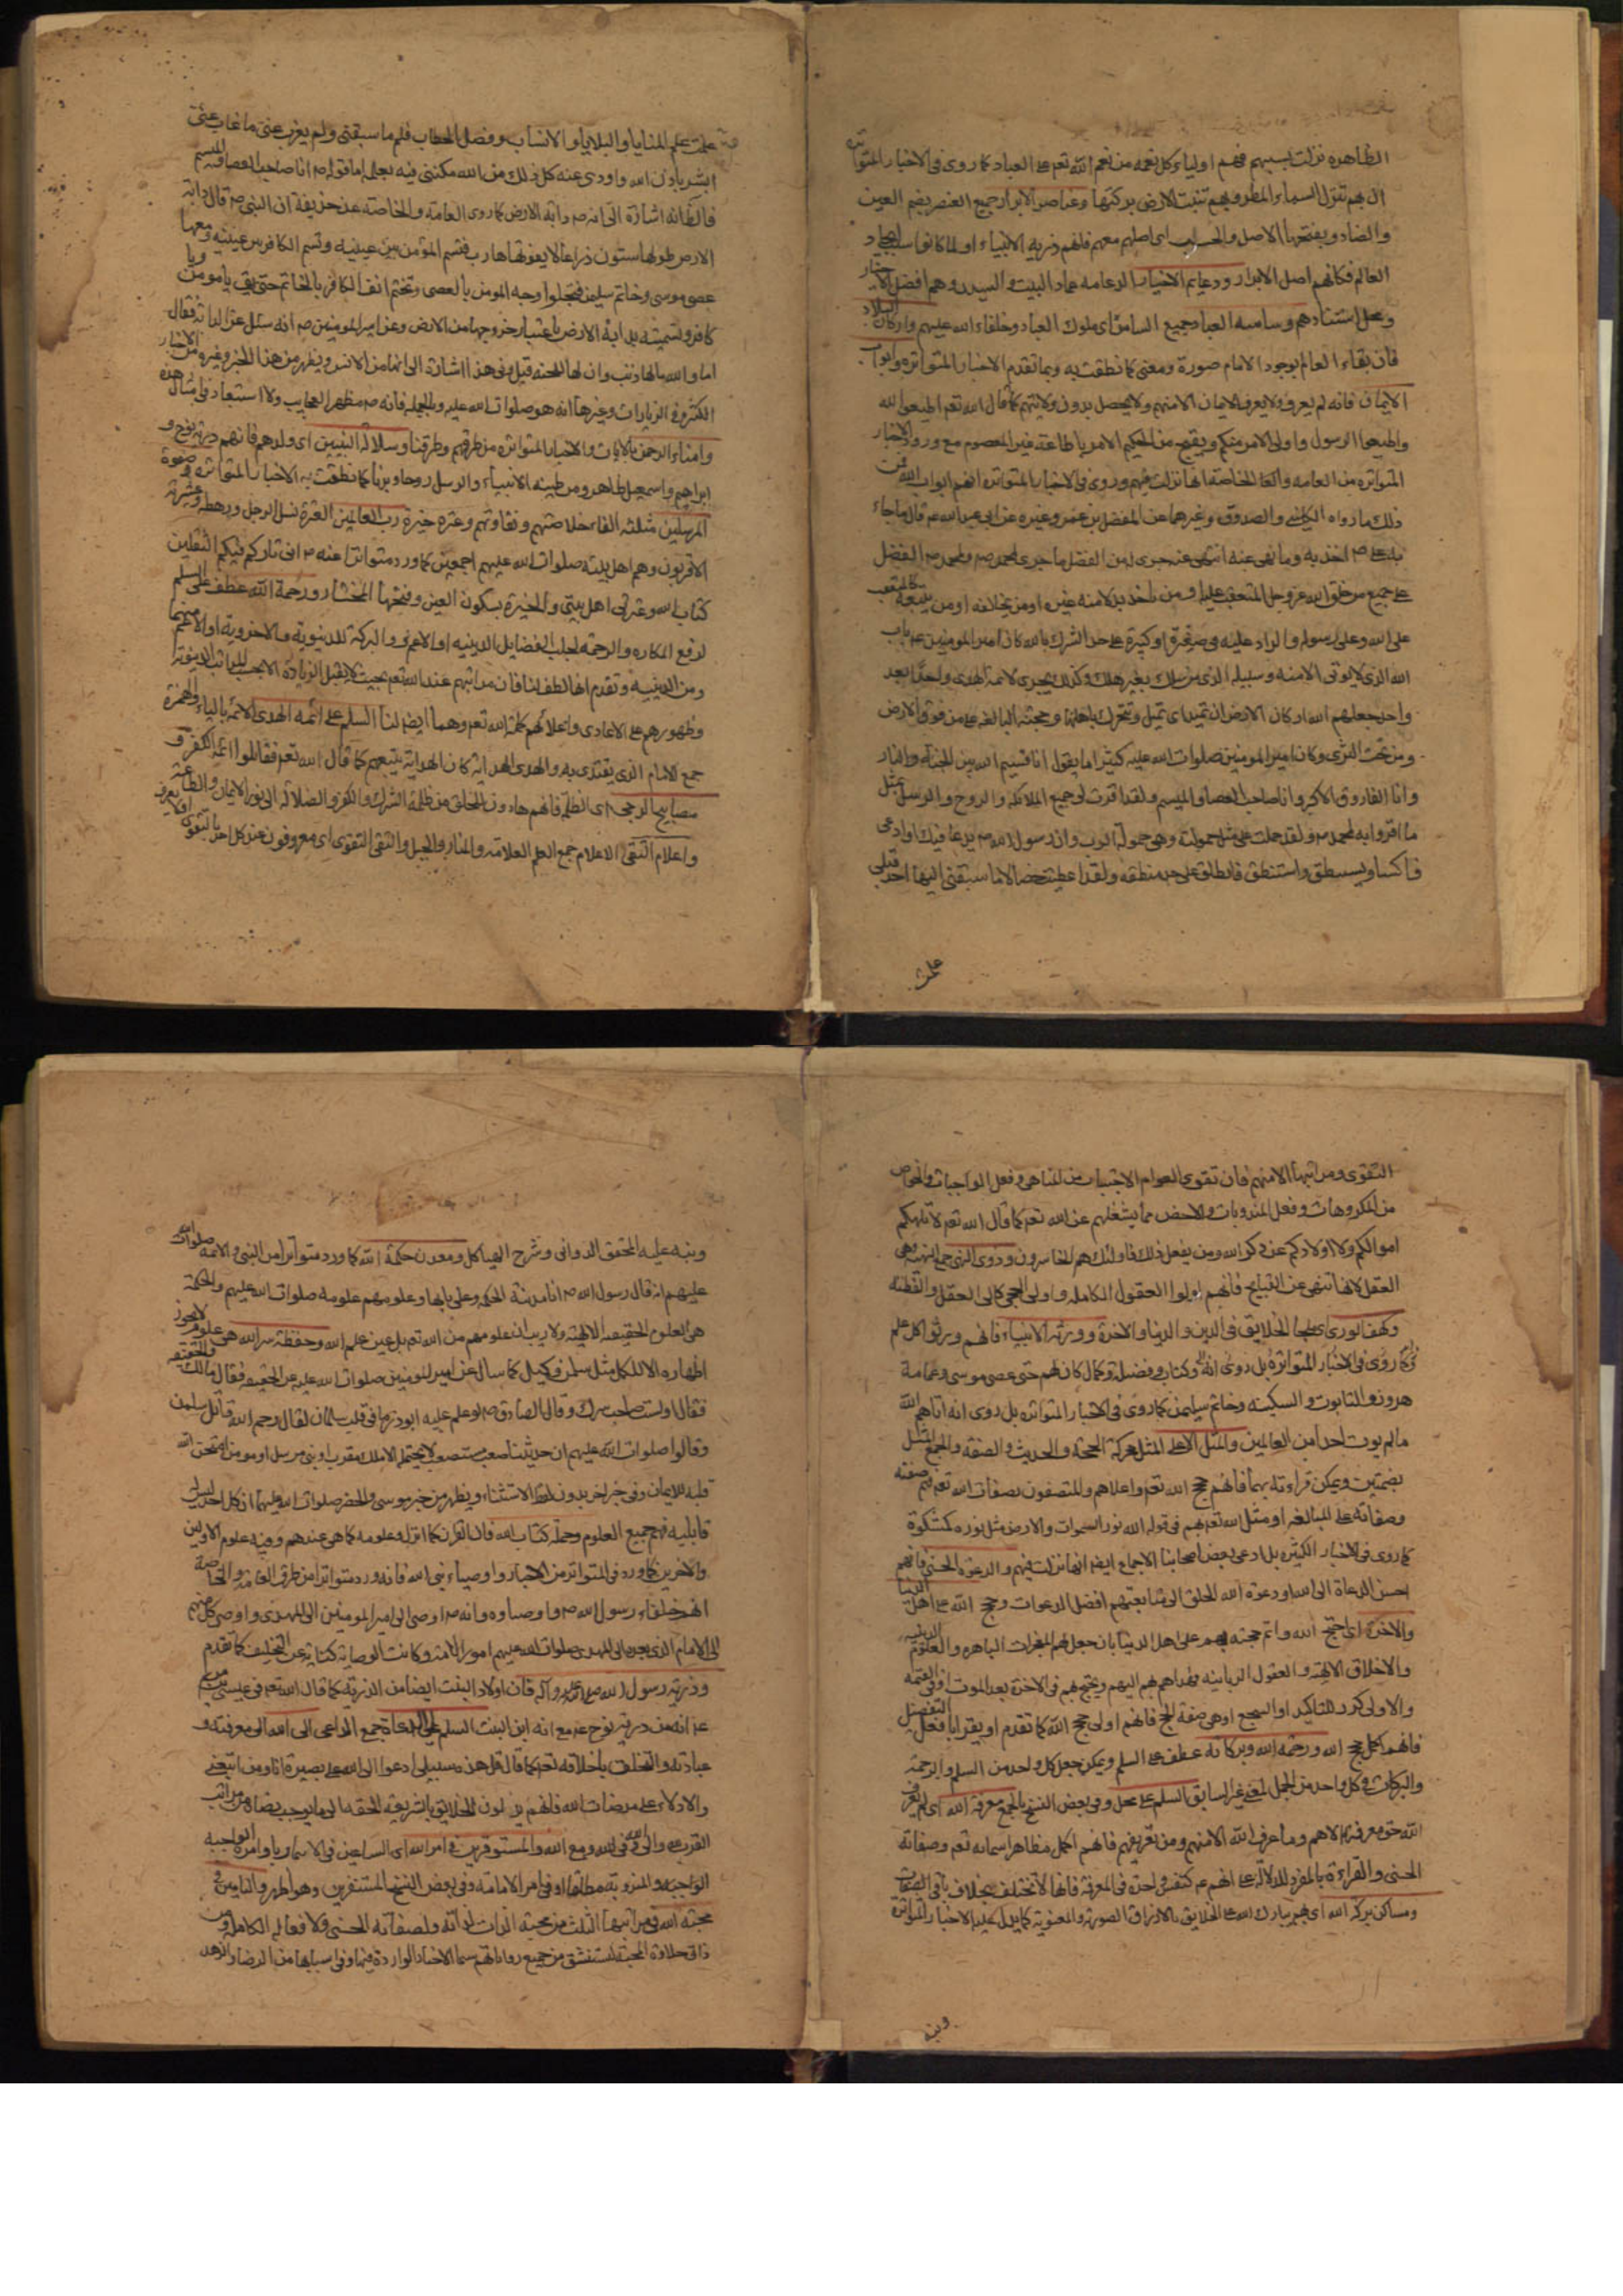 الظاهرة نزلت بسببهم فهم اولياء كل نعمه من نعم الله تعم على العباد كما روى فى الاخبار المتواتره
ان بهم تنزل السماء المطر وبهم تنبت الارض بركتها وعناصر الابرار جمع العنصر بضم العين
والصاد وبفتحها الاصل والحسب اى اصلهم معهم فانهم ذريه الانبياء او لما كانوا سبب ايجاد
العالم فكانهم اصل الابرار ودعايم الاخيار الدعامه عماد البيت والسيد وهم افضل الاخيار
ومحل استنادهم وساسه العباد جمع السائس اى ملوك العباد وخلفاء الله عليهم واركان البلاد
فان بقاء العالم بوجود الامام صورة ومعنى كما نطقت به وبما تقدم الاخبار المتواتره وابواب
الايمان فانه لم يعرف ولا يعرف الايمان الا منهم ولا يحصل بدون ولايتهم كما قال الله تعم اطيعوا الله
واطيعوا الرسول واولى الامر منكم ويقبح من الحكيم الامر باطاعة غير المعصوم مع ورود الاخبار
المتواتره من العامه والخاصة انها نزلت فيهم وروى فى الاخبار المتواتره انهم ابواب الله فمن
ذلك ما رواه الكلينى والصدوق وغيرهما عن المفضل بن عمر وغيره عن ابى عبد الله ع قال ما جاء
به على ص اخذ به وما نهى عنه انتهى عنه جرى له من الفضل ما جرى لمحمد ص ولمحمد ص الفضل
على جميع من خلق الله عز وجل المتعقب عليه
على الله وعلى رسوله والراد عليه فى صغيرة او كبيرة على حد الشرك بالله كان امير المومنين ع باب
الله الذى لا يؤتى الا منه وسبيله الذى من سلك بغيره هلك وكذلك يجرى لائمة الهدى واحدا بعد
واحد جعلهم الله اركان الارض ان تميد اى تميل وتتحرك باهلها وحجته البالغه على من فوق الارض
ومن تحت الثرى وكان امير المومنين صلوات الله عليه كثيرا ما يقول انا قسيم الله بين الجنة والنار
وانا الفاروق الاكبر وانا صاحب العصا والميسم ولقد اقرت لى جميع الملائكه والروح والرسل بمثل
ما اقروا به لمحمد ص ولقد حملت على مثل حمولته وهى حمولة الرب وان رسول الله ص يدعا فيكسا وادعى
فاكسا ويستنطق واستنطق فانطلق على حد منطقه ولقد اعطيت خصالا ما سبقنى اليها احد قبلى
علمت
علمت علم المنايا والبلايا والانساب وفصل الخطاب فلم ما سبقنى ولم يعزب عنى ما غاب عنى
ابشر باذن الله واودى عنه كل ذلك من الله مكننى فيه بعلمه اما قوله ص انا صاحب العصا والميسم
فالظ انه اشارة الى انه ص دابة الارض كما روى العامه والخاصة عن حذيفة ان النبى ص قال دابة
الارض طولها ستون ذراعا لا يفوتها هارب فتسم المؤمن بين عينيه وتسم الكافر بين عينيه ومعها
عصى موسى وخاتم سليمن فتجلوا وجه المومن بالعصى وتختم انف الكافر بالخاتم حتى يق يا مومن ويا
كافر وتسميته بدابة الارض باعتبار خروجها من الارض وعن امير المومنين ص انه سئل عن الدابة فقال
اما والله ما لها ذنب وان لها للحيه قيل وفى هذا اشارة الى انها من الانس ويظهر من هذا الخبر وغيره من الاخبار
الكثيره فى الزيارات وغيرها انه هو صلوات الله عليه وبالجمله فانه ص مظهر العجايب ولا استبعاد فى امثال هذه
وامناء الرحمن بالايات والاخبار المتواتره من طرقهم وطرقنا وسلالة النبيين اى ولدهم فانهم ذرية نوح و
ابراهيم واسمعيل ظاهرا ومن طينه الانبياء والرسل روحا وبدنا كما نطقت به الاخبار المتواتره وصفوة
المرسلين مثلثه الفاء خلاصتهم ونقاوتهم وعترة خيرة رب العالمين العترة نسل الرجل ورهطه وعشيرته
الاقربون وهم اهل بيته صلوات الله عليهم اجمعين كما ورد متواترا عنه ص انى تارك فيكم الثقلين
كتاب الله وعترتى اهل بيتى والخيرة بسكون العين وفتحها المختار ورحمة الله عطف على السلم
لدفع المكاره والرحمة لجلب الفضايل الدينيه او الاعم والبركة للدنيوية والاخروية او الاعم منهما
ومن الدينيه وتقدم انها لطف لنا فان مراتبهم عند الله تعم بحيث لا يقبل الزيادة الا بحسب المراتب الدنيوية
وظهورهم على الاعادى واعلائهم كلمة الله تعم وهما ايضا لنا السلم على ائمه الهدى الائمه بالياء والهمزة
جمع الامام الذى يقتدى به والهدى الهداية كان الهداية تتبعهم كما قال الله تعم فقاتلوا ائمة الكفر و
مصابيح الدجى اى الظلمة فانهم هادون الخلق من ظلمة الشرك والكفر والضلالة الى نور الايمان والطاعة
واعلام التقى الاعلام جمع العلم العلامه والمنار والجبل والتقى التقوى اى معروفون عند كل احد بالتقوى
التقوى ومراتبها الا منهم فان تقوى العوام الاجتناب من المناهى وفعل الواجبات والخواص
من المكروهات وفعل المندوبات والاخص مما يشغلهم عن الله تعم كما قال الله تعم لا تلهكم
اموالكم ولا اولادكم عن ذكر الله ومن يفعل ذلك فاولئك هم الخاسرون وذوى النهى جمع النهيه وهى
العقل لانها تنهى عن القبايح فانهم اولوا العقول الكامله واولى الحجى كالى العقل والفطنه
وكهف الورى اى ملجا الخلايق فى الدين والدنيا والاخرة وورثة الانبياء فانهم ورثوا كل علم
كما روى فى الاخبار المتواترة بل روى انه وكتاب وفضيلة وكمال كان لهم حتى عصى موسى وعمامة
هرون والتابوت والسكينه وخاتم سليمن كما روى فى الاخبار المتواتره بل روى انه اتاهم الله
ما لم يوت احدا من العالمين والمثل الاعلى المثل محركة الحجة والحديث والصفة والجمع المثل
بضمتين ويمكن قراءته بهما فانهم حجج الله تعم واعلاهم والمتصفون بصفات الله تعم فهم صفته
وصفاته على المبالغه او مثل الله تعم بهم فى قوله الله نور السموات والارض مثل نوره كمشكوة
كما روى فى الاخبار الكثيره بل ادعى بعض اصحابنا الاجماع ايضا انها نزلت فيهم والدعوة الحسنى فانهم
احسن الدعاة الى الله او دعوة الله الخلق الى متابعتهم افضل الدعوات وحجج الله على اهل الدنيا
والاخرة اى احتج الله واتم حجته بهم على اهل الدنيا بان جعل لهم المعجزات الباهره والعلوم الدينيه
والاخلاق الالهية والعقول الربانيه فهداهم بهم اليهم ويحتج بهم فى الاخرة بعد الموت او فى القيمه
والاولى كرر للتاكيد او السجع او هى صفة لحجج فانهم اولى حجج الله كما تقدم او يقرا بافعل التفضيل
فانهم اكمل حجج الله ورحمة الله وبركاته عطف على السلم ويمكن جعل كل واحد من السلم والرحمة
والبركات فى كل واحد من الجمل لمعنى غير السابق السلم على محل وفى بعض النسخ بالجمع معرفة الله اى لم يعرف
الله حق معرفته الا هم وما عرف الله الا منهم ومن تعريفهم فانهم اكمل مظاهر اسمائه تعم وصفاته
الحسنى والقراءة بالمفرد للدلالة على انهم ع كنفس واحدة فى المعرفة فانها لا تختلف بخلاف باقى الصفات
ومساكن بركة الله اى بهم يبارك الله على الخلايق بالارزاق الصوريه والمعنوية كما يدل عليه الاخبار المتواتره
ونبه
ونبه عليه المحقق الدوانى فى شرح الهياكل ومعدن حكمة الله كما ورد متواترا من النبى والائمه صلوات الله
عليهم انه قال رسول الله ص انا مدينة الحكمة وعلى بابها وعلومهم علومه صلوات الله عليهم والحكمة
هى العلوم الحقيقيه الالهية ولا ريب ان علومهم من الله تعم بل عين علم الله وحفظة سر الله هى علوم لا يجوز
اظهاره الا للكمل مثل سلمن وكميل كما سال عن امير المومنين صلوات الله عليه عن الحقيقه فقال مالك والحقيقه
فقال اولست صاحب سرك وقال الصادق ص لو علم عليه ابو ذر ما فى قلب سلمان لقال رحم الله قاتل سلمن
وقالوا صلوات الله عليهم ان حديثنا صعب مستصعب لا يحتمله الا ملك مقرب او نبى مرسل او مومن امتحن الله
قلبه للايمان وفى خبر اخر بدون لفظ الاستثناء ويظهر من خبر موسى والخضر صلوات الله عليهما ان كل احد ليس له
قابلية فهم جميع العلوم وحملة كتاب الله فان القران كما انزل وعلومه كما هى عندهم وفيه علوم الاولين
والاخرين كما ورد فى المتواتر من الاخبار واوصياء نبى الله فانه ورد متواترا من طرق العامه والخاصة
انهم خلفاء رسول الله ص واوصياوه وانه ص اوصى الى امير المومنين الى المهدى واوصى كل منهم
الى الامام الذى بعده الى المهدى صلوات الله عليهم امور الامة وكانت الوصاية كناية عن التخليف كما تقدم
وذرية رسول الله صلى الله عليه وآله فان اولاد البنت ايضا من الذرية كما قال الله تعم فى عيسى بن مريم
ع انه من ذرية نوح ع مع انه ابن البنت السلم على الدعاة جمع الداعى الى الله الى معرفته و
عبادته والتخلق باخلاقه تعم كما قال قل هذه سبيلى ادعوا الى الله على بصيرة انا ومن اتبعنى
والادلاء على مرضات الله فانهم يدلون الخلايق بالشريعه الحقه الى ما يوجب رضاه من مراتب
القرب والى الله فى الله ومع الله والمستوفرين فى امر الله اى الساعين فى الايتمار باوامره الواجبه
الواجبه والمندوبه مطلقا او فى امر الامامة وفى بعض النسخ المستنفرين وهو اظهر والتامين فى
محبة الله فى مراتبها الثلث من محبة الذات لذاته ولصفاته الحسنى ولافعاله الكامله ومن
ذاق حلاوة المحبة يستنشق من جميع رواياتهم سيما الاخبار الوارده فيها وفى اسبابها من الرضا والزهد